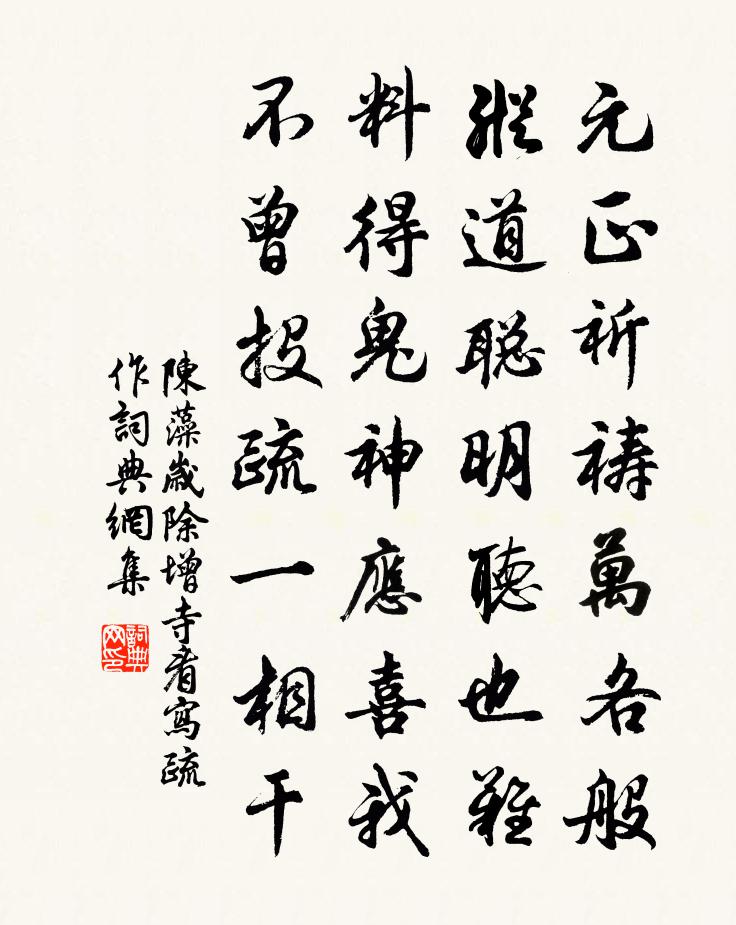 元正祈禱萬各般
縱道聰明聽也難
料得鬼神應喜我
不曾投疏一相干
陳藻歲除增寺看寫疏
作詞典網集
詞典网印